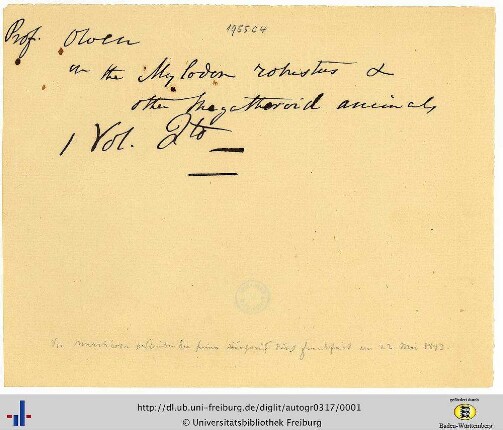 1965 C4
Prof. Owen
on the Mylodon robustus &
other Megatheroid animals
1 Vol. 4to
seine durch Frankfurt am 22 Mai 1843.
http://dl.ub.uni-freiburg.de/diglit/autogr0317/0001
© Universitätsbibliothek Freiburg
gefördert durch:
Baden-Württemberg